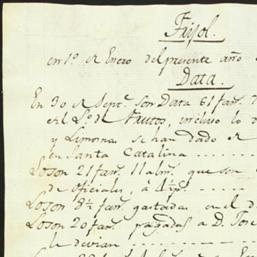 Frijol.
en 1º de Enero del presente año
Data.
En 30 de Septe. son Data 61 fans.
el Lº de Frutos, incluso lo
y Limosna se han dado
en Santa Catalina
Loson 21 fans. 11 alms. que son
de oficiales, á
Loson 8½ fans. gastadas en el
Loson 20 fans. pagadas a D. Jose
le devian